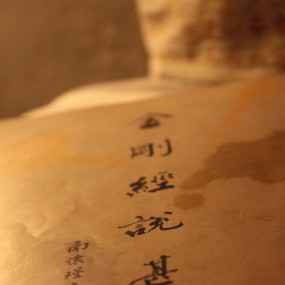 金剛經說甚
南懷瑾